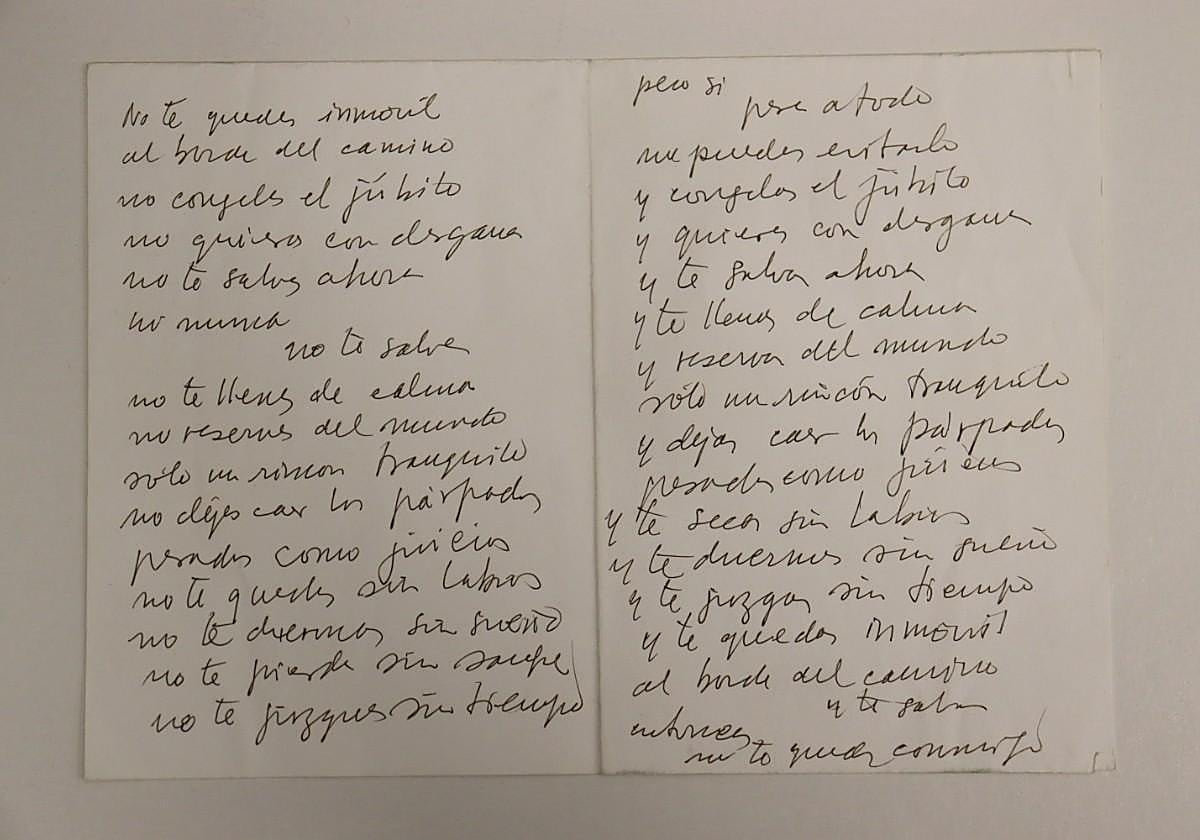 No te quedes inmóvil
al borde del camino
no congeles el júbilo
no quieras con desgana
no te salves ahora
ni nunca
no te salves
no te llenes de calma
no reserves del mundo
sólo un rincón tranquilo
no dejes caer los párpados
pesados como juicios
no te quedes sin labios
no te duermas sin sueño
no te pierdas sin sangre
no te juzgues sin tiempo
pero si
pese a todo
no puedes evitarlo
y congelas el júbilo
y quieres con desgana
y te salvas ahora
y te llenas de calma
y reservas del mundo
sólo un rincón tranquilo
y dejas caer los párpados
pesados como juicios
y te secas sin labios
y te duermes sin sueño
y te juzgas sin tiempo
y te quedas inmóvil
al borde del camino
y te salvas
entonces
no te quedes conmigo